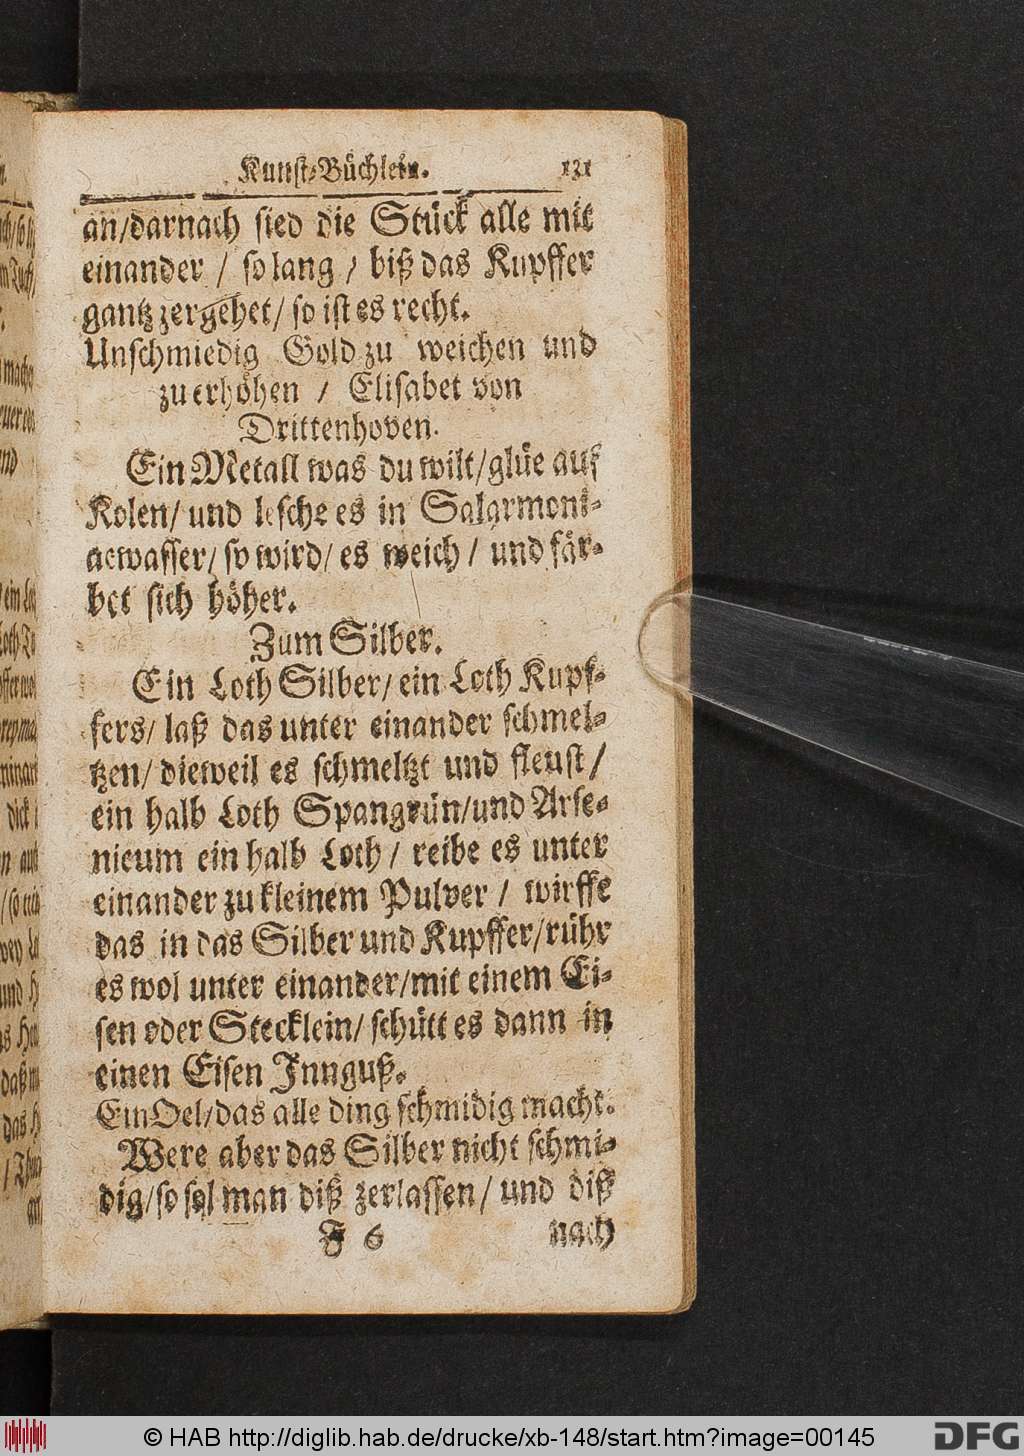 Kunst-Büchlein. 131
an/darnach sied die Stück alle mit
einander / so lang / biß das Kupffer
gantz zergehet/ so ist es recht.
Unschmiedig Gold zu weichen und
zu erhöhen / Elisabet von
Drittenhoven.
Ein Metall was du wilt/glüe auf
Kolen/ und lesche es in Salarmoni-
acwasser/ so wird/ es weich / und fär-
bet sich höher.
Zum Silber.
Ein Loth Silber/ ein Loth Kupf-
fers/ laß das unter einander schmel-
tzen/ dieweil es schmeltzt und fleust /
ein halb Loth Spangrün/und Arse-
nicum ein halb Loth / reibe es unter
einander zu kleinem Pulver / wirffe
das in das Silber und Kupffer/rühr
es wol unter einander/mit einem Ei-
sen oder Stecklein/ schütt es dann in
einen Eisen Innguß.
Ein Oel/das alle ding schmidig macht.
Were aber das Silber nicht schmi-
dig/so sol man diß zerlassen/ und diß
F 6 nach
© HAB http://diglib.hab.de/drucke/xb-148/start.htm?image=00145
DFG